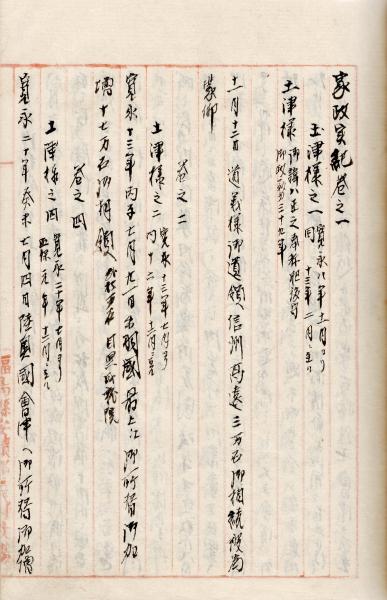 家政実紀巻之一
土津様之一 寛永八年十一月ゟ
同十三年二月ニ至ル
土津様 御諱ハ正之奉称肥後守
御政事三十九年
十一月十二日 道義様御遺領信州高遠三万石御相続被為
蒙仰
巻之二
土津様之二 寛永十三年七月ゟ
同十二年十二月ニ至ル
寛永十三年丙子七月廿一日出羽国最上江御所替御加
増十七万石御拝領
巻之四
土津様之四 寛永二十年七月ゟ
正保元年十二月ニ至ル
寛永二十年癸未七月四日陸奥国会津へ御所替御加増